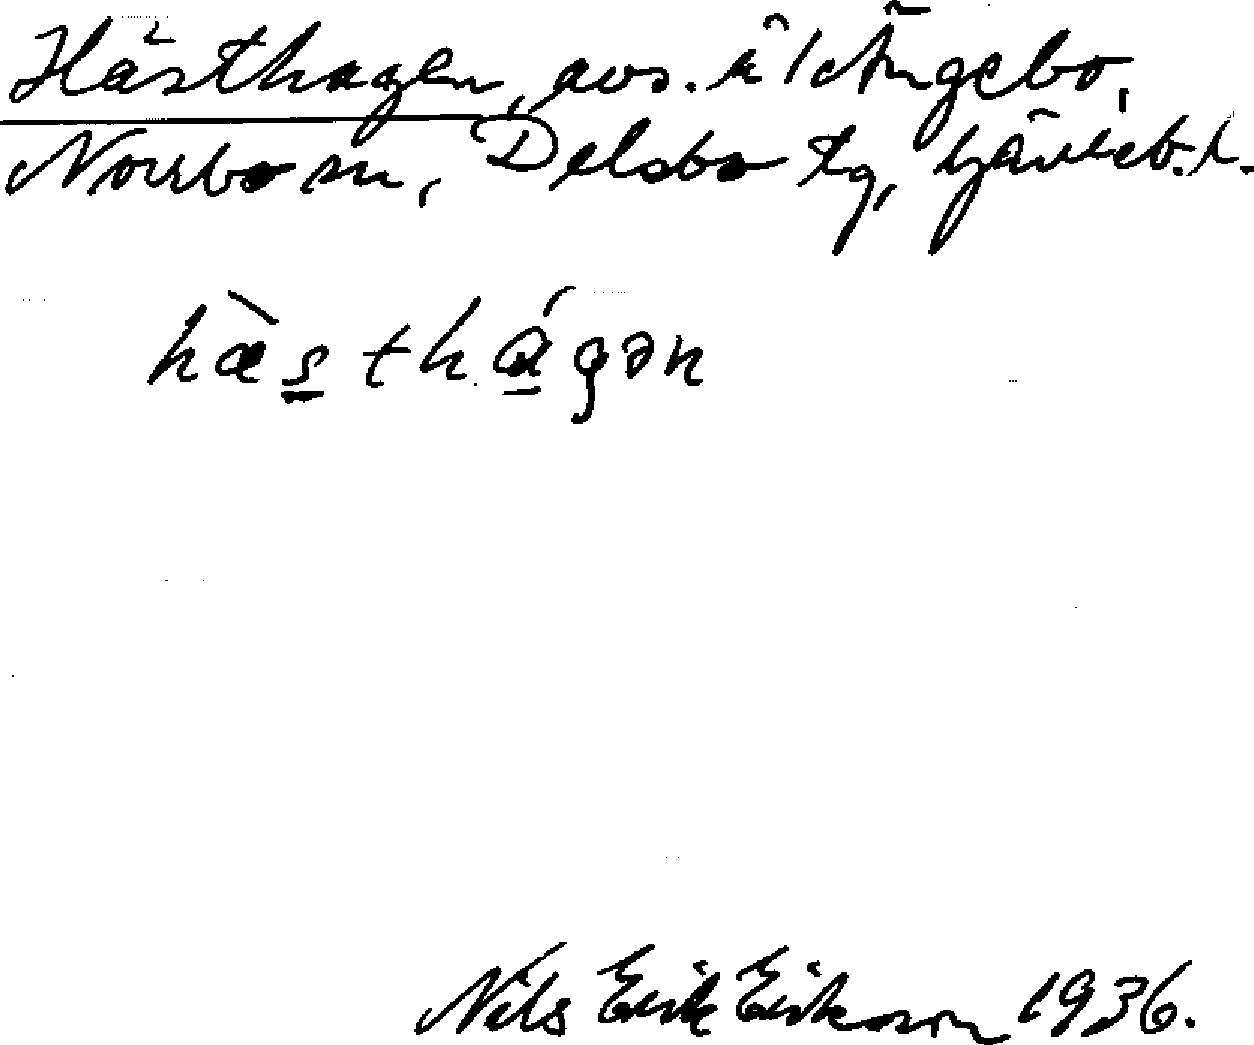 Hästhagen, avs. å /Ängebo,
Norrbo sn, Delsbo tg, Gävleb. l.
hæ̀s̲thɑ̲́gən
Nils Erik Erikson 1936.